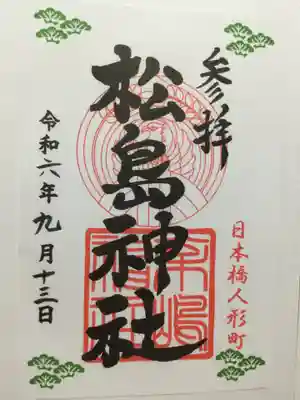 参拝
松島神社
日本橋人形町
令和六年九月十三日